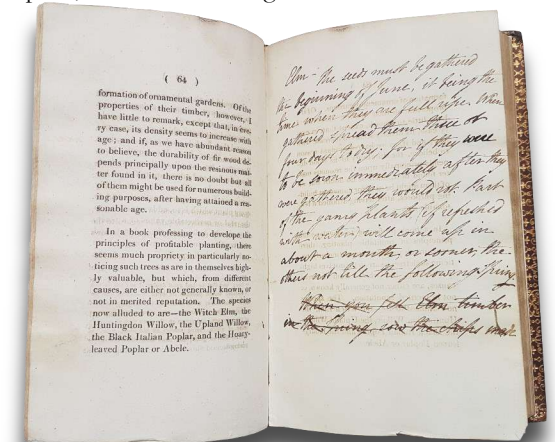 ( 64 )
formation of ornamental gardens. Of the
properties of their timber, however, I
have little to remark, except that, in eve-
ry case, its density seems to increase with
age; and if, as we have abundant reason
to believe, the durability of fir wood de-
pends principally upon the resinous mat-
ter found in it, there is no doubt but all
of them might be used for numerous build-
ing purposes, after having attained a rea-
sonable age.
In a book professing to develope the
principles of profitable planting, there
seems much propriety in particularly no-
ticing such trees as are in themselves high-
ly valuable, but which, from different
causes, are either not generally known, or
not in merited reputation. The species
now alluded to are—the Witch Elm, the
Huntingdon Willow, the Upland Willow,
the Black Italian Poplar, and the Hoary-
leaved Poplar or Abele.
Elm - the seeds must be gathered
the beginning of June, it being the
time when they are full ripe. When
gathered spread them three or
four days to dry. for if they were
to be sown immediately after they
were gathered, they would rot. Part
of the young plants (if refreshed
with water) will come up in
about a month, or sooner, the
others not till the following spring
When you fell Elm timber
in the spring sow the chips made